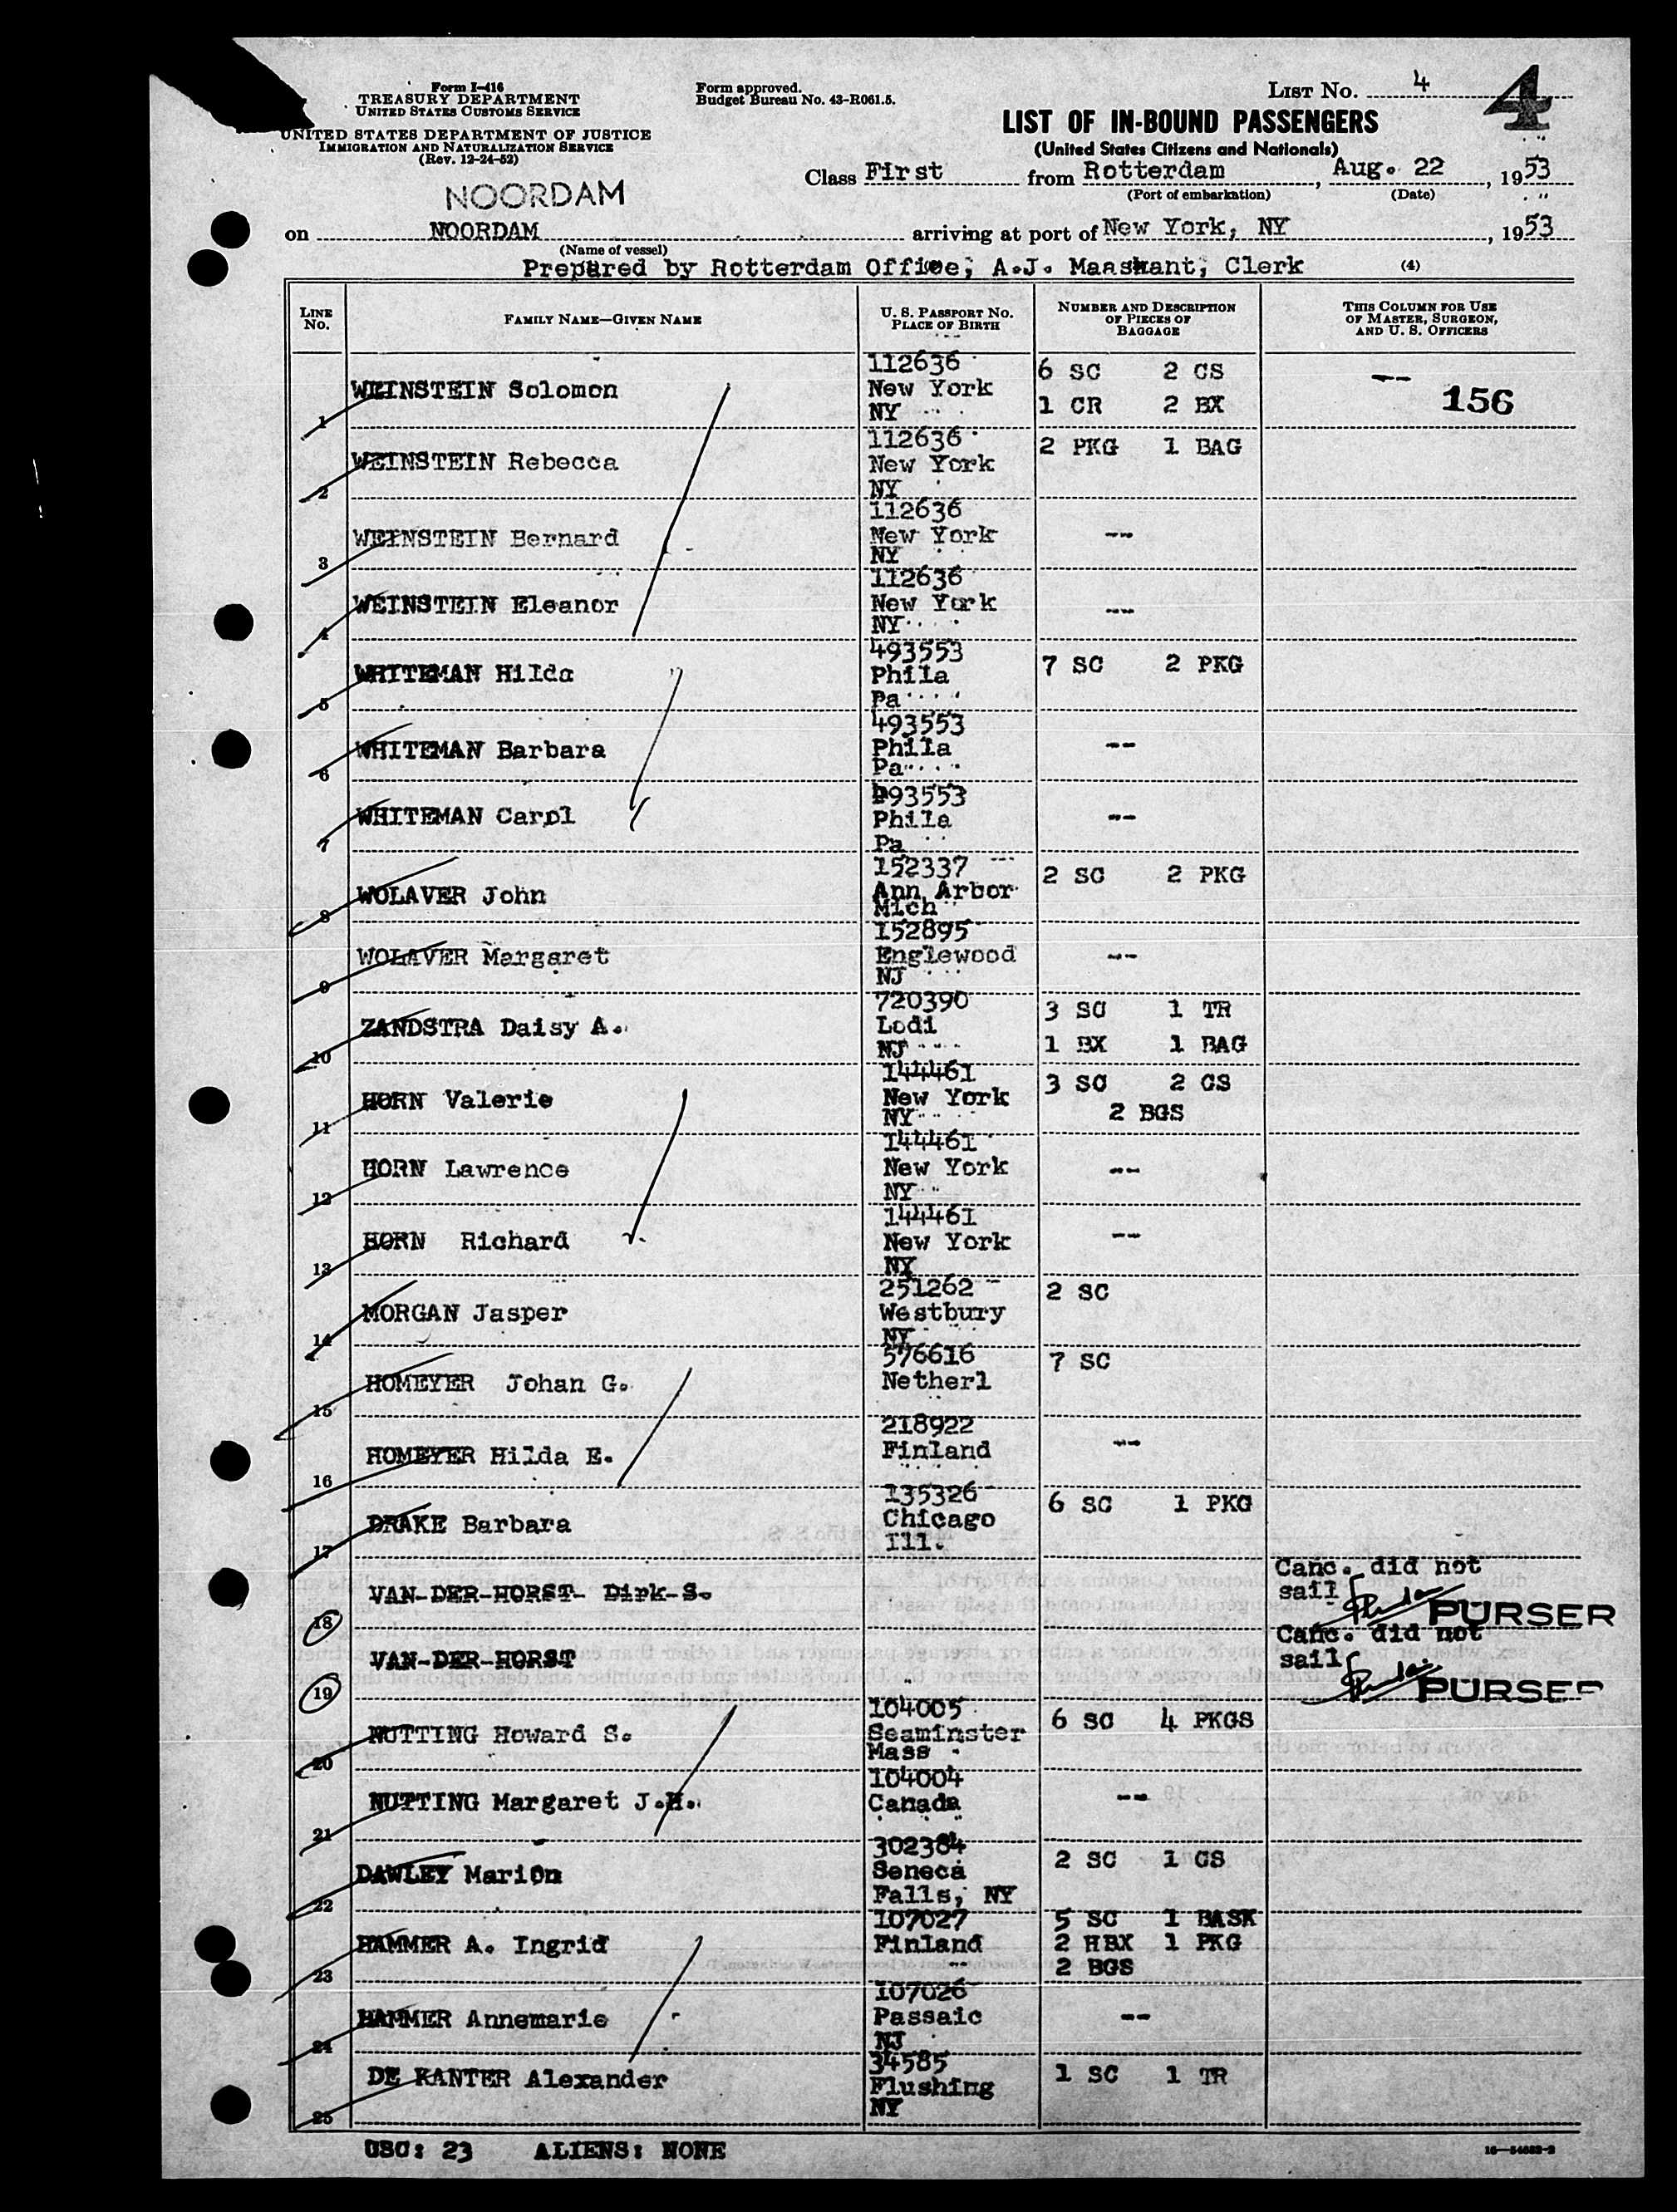 Form I-416
TREASURY DEPARTMENT
UNITED STATES CUSTOMS SERVICE
UNITED STATES DEPARTMENT OF JUSTICE
IMMIGRATION AND NATURALIZATION SERVICE
(Rev. 12-24-52)
Form approved.
Budget Bureau No. 43-R061.5.
LIST NO. 4
4
LIST OF IN-BOUND PASSENGERS
(United States Citizens and Nationals)
Class First from Rotterdam, Aug. 22, 1953
(Port of embarkation) (Date)
NOORDAM
on NOORDAM arriving at port of New York, NY, 1953
(Name of vessel)
Prepared by Rotterdam Office, A.J. Maaskant, Clerk (4)
LINE No. FAMILY NAME—GIVEN NAME U. S. PASSPORT NO. PLACE OF BIRTH NUMBER AND DESCRIPTION OF PIECES OF BAGGAGE THIS COLUMN FOR USE OF MASTER, SURGEON, AND U. S. OFFICERS
1 WEINSTEIN Solomon 112636 New York NY 6 SC 2 CS 1 CR 2 BX -- 156
2 WEINSTEIN Rebecca 112636 New York NY 2 PKG 1 BAG
3 WEINSTEIN Bernard 112636 New York NY --
4 WEINSTEIN Eleanor 112636 New York NY --
5 WHITEMAN Hilda 493553 Phila Pa 7 SC 2 PKG
6 WHITEMAN Barbara 493553 Phila Pa --
7 WHITEMAN Carol 493553 Phila Pa --
8 WOLAVER John 152337 Ann Arbor Mich 2 SC 2 PKG
9 WOLAVER Margaret 152895 Englewood NJ --
10 ZANDSTRA Daisy A. 720390 Lodi NJ 3 SC 1 TR 1 BX 1 BAG
11 HORN Valerie 144461 New York NY 3 SC 2 CS 2 BGS
12 HORN Lawrence 144461 New York NY --
13 HORN Richard 144461 New York NY --
14 MORGAN Jasper 251262 Westbury NY 2 SC
15 HOMEYER Johan G. 576616 Netherl 7 SC
16 HOMEYER Hilda E. 218922 Finland --
17 DRAKE Barbara 135326 Chicago Ill. 6 SC 1 PKG
18 VAN-DER-HORST- Dirk-S. Canc. did not sail PURSER
19 VAN-DER-HORST Canc. did not sail PURSER
20 NUTTING Howard S. 104005 Seaminster Mass 6 SC 4 PKGS
21 NUTTING Margaret J.H. 104004 Canada --
22 DAWLEY Marion 302384 Seneca Falls, NY 2 SC 1 CS
23 HAMMER A. Ingrid 107027 Finland 5 SC 1 BASK 2 HBX 1 PKG 2 BGS
24 HAMMER Annemarie 107026 Passaic NJ --
25 DE KANTER Alexander 34585 Flushing NY 1 SC 1 TR
USC: 23 ALIENS: NONE